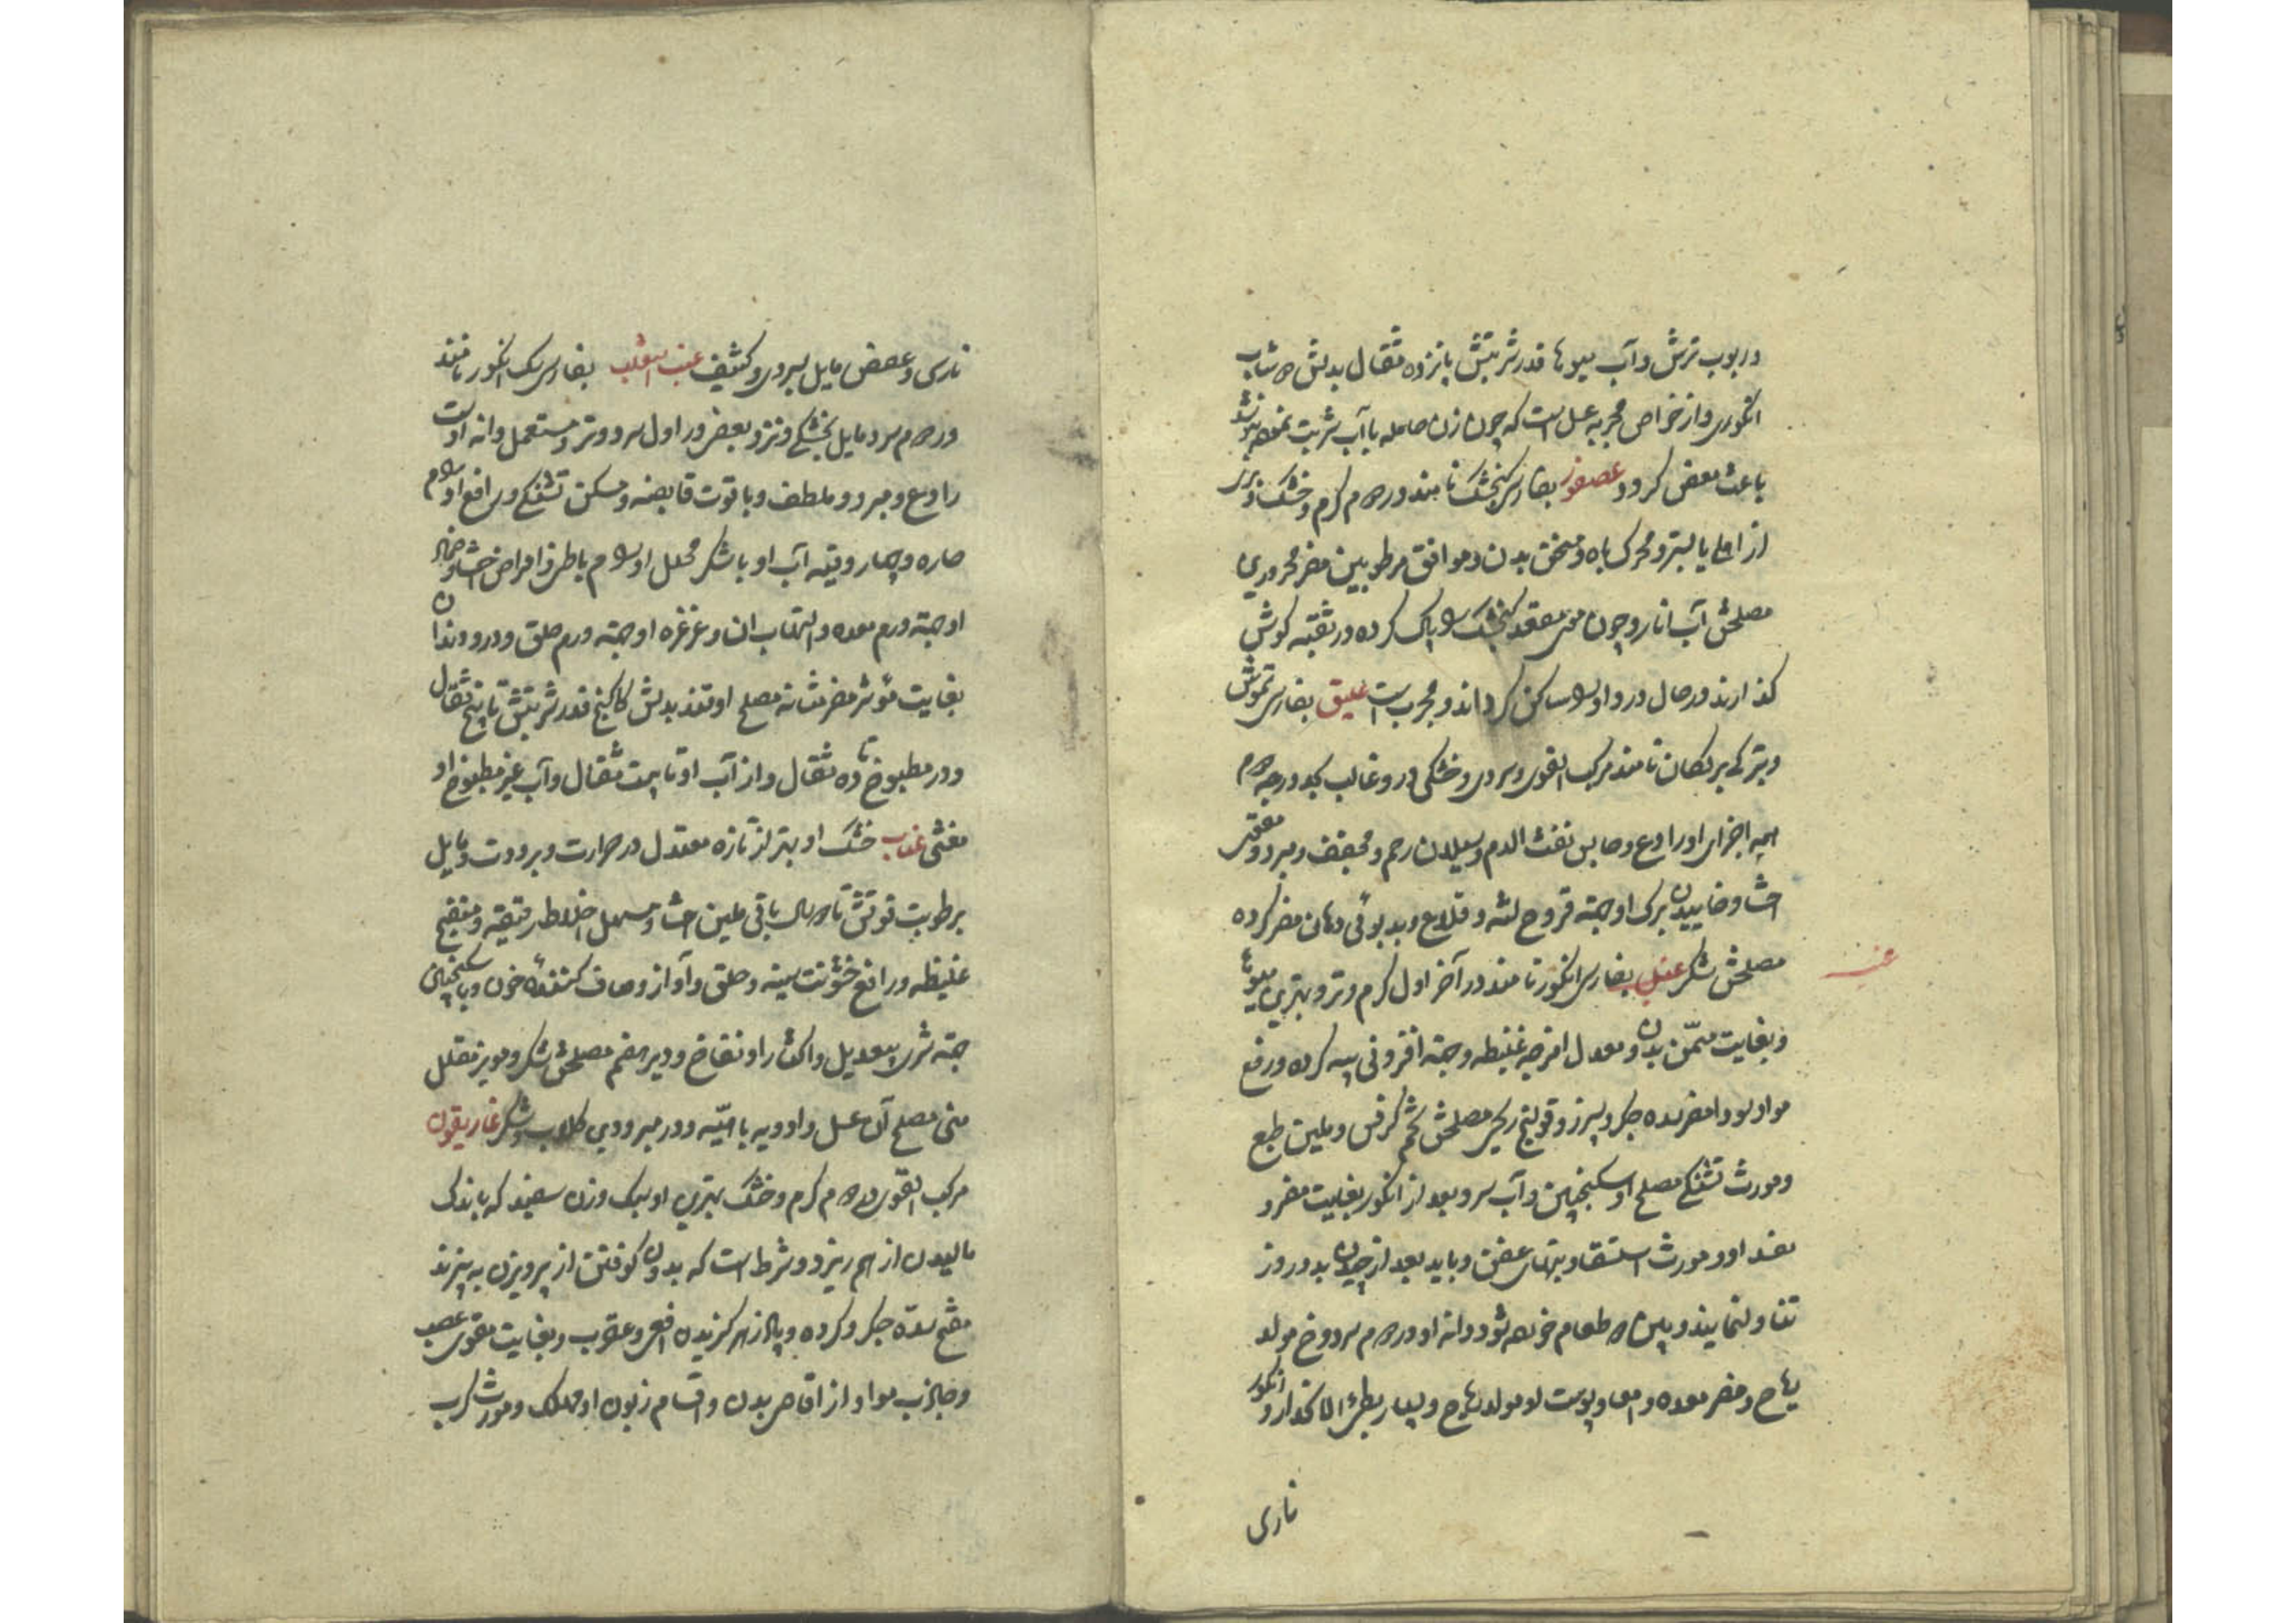 در بوب ترش و آب میوها قدر شربتش پانزده مثقال بدلش دوشاب
انگوری و از خواص مجربه عسل است که چون زن حامله با آب شربت نموده بنوشد
باعث مغص کردد عصفور بفارسی کنجشک نامند در دوم گرم و خشک و بری
از اهلی بالیتر و محرک باه و مسخن بدن و موافق مرطوبین مضر محرورین
مصلحش آب انار و چون موی مقعد کنجشک را پاک کرده در ثقبه کوش
گذارند در حال درد او را ساکن گرداند و مجرب است علیق بفارسی تموش
و بترکی بر نکان نامند مرکب القوی و سردی و خشکی درو غالب کبد درجه دوم
همه اجزای او رادع و حابس نفث الدم و سیلان رحم و مجفف و مبرد و مقوی
احشا و خاییدن برک او جهة قروح لثه و قلاع و بدبوئی دهان مضر کرده
مصلحش شکر عنب بفارسی انکور نامند در آخر اول گرم و تر و بهترین میوها
و بغایت مسمّن بدن و معدل امزجه غلیظه و جهة افزونی پیه کرده و رفع
مواد سودا مضر سده جگر و سپرز و قولنج ریحی مصلحش تخم کرفس و ملین طبع
و مورث تشنگی مصلح او سکنجبین و آب سرد بعد از انکور بغایت مضر و
مفسد او و مورث استسقا و تبهای عفن و باید بعد از چیدن بدو روز
تناول نمایند و بین دو طعام خورده شود و دانه او در دوم سرد و خ مولد
ریاح و مضر معده و امعا و پوست او مولد ریاح و بسیار بطئ الا نحدار و انکور
ناری
عنب
ناری و عصص مایل بسردی و کثیف عنب الثعلب بفارسی سک انکور نامند
در دوم سرد مایل بخشکی و نزد بعضی در اول سرد و تر و مستعمل دانه اوست
رادع و مبرد و ملطف و با قوت قابضه و مسکن تشنگی و رافع اورام
حاره و چهار وقیه آب او با شکر محلل اورام باطن و امراض احشا و ضماد
او جهة ورم معده و التهاب ان و غرغره او جهة ورم حلق و درد دندان
بغایت مؤثر مضر مثانه مصلح او قند بدلش کاکنج قدر شربتش تا پنج مثقال
و در مطبوخ تا ده مثقال و از آب او تا بیست مثقال و آب غیر مطبوخ او
مغثی عناب خشک او بهتر از تازه معتدل در حرارت و برودت و مایل
برطوبت قوتش تا دو سال باقی ملین احشا و مسهل اخلاط رقیقه و منضج
غلیظه و رافع خشونت سینه و حلق و آواز و صاف کننده خون و با سکنجبین
جهة شری بیعدیل و اکثار او نفاخ و دیر هضم مصلحش شکر و مویز مقلل
منی مصلح آن عسل و ادویه باهیّه و در مبرودین گلاب و شکر غاریقون
مرکب القوی در دوم گرم و خشک بهترین او سبک وزن سفید که باندک
مالیدن از هم ریزد و شرط است که بدون کوفتن از پرویزن به بیزند
مفتح سدّه جگر و کرده و پادزهر گزیدن افعی و عقرب و بغایت مقوی عصب
و جاذب مواد از اقاصی بدن و اقسام زبون او مهلک و مورث کرب